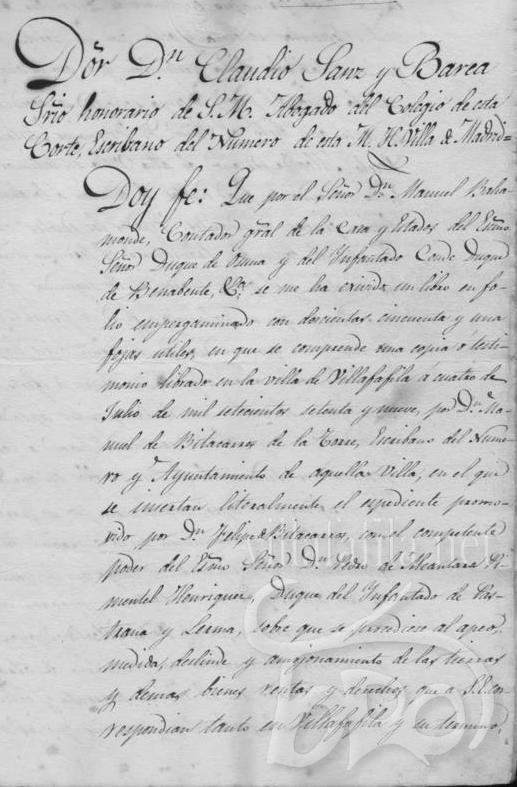 Dōr D.n Claudio Sanz y Barea
Srio honorario de S. M. Abogado del Colegio de esta
Corte, Escribano del Numero de esta M. H. Villa de Madrid=
Doy fe: Que por el Señor D.n Manuel Balia-
monde, Contador gral de la Casa y Estados del Exmo
Señor Duque de Osuna y del Ynfantado Conde Duque
de Benabente, &c. se me ha exivido un libro en fo-
lio empergaminado con doscientas cincuenta y una
fojas utiles, en que se comprende una copia ó testi-
monio librado en la villa de Villafafila a cuatro de
Julio de mil setecientos setenta y nueve, por D.n Ma-
nuel de Bilacarros de la Torre, Escribano del Nume-
ro y Ayuntamiento de aquella Villa, en el que
se insertan literalmente el espediente promo-
vido por D.n Felipe de Bilacarros, con el competente
poder del Exmo Señor D.n Pedro de Alcantara Pi-
mentel Henriquez, Duque del Ynfantado de Pas-
trana y Lerma, sobre que se procediese al apeo,
medida, deslinde y amojonamiento de las tierras
y demas bienes rentas y derechos que a S.E. cor-
respondian tanto en Villafafila y su termino,
villafafila.net